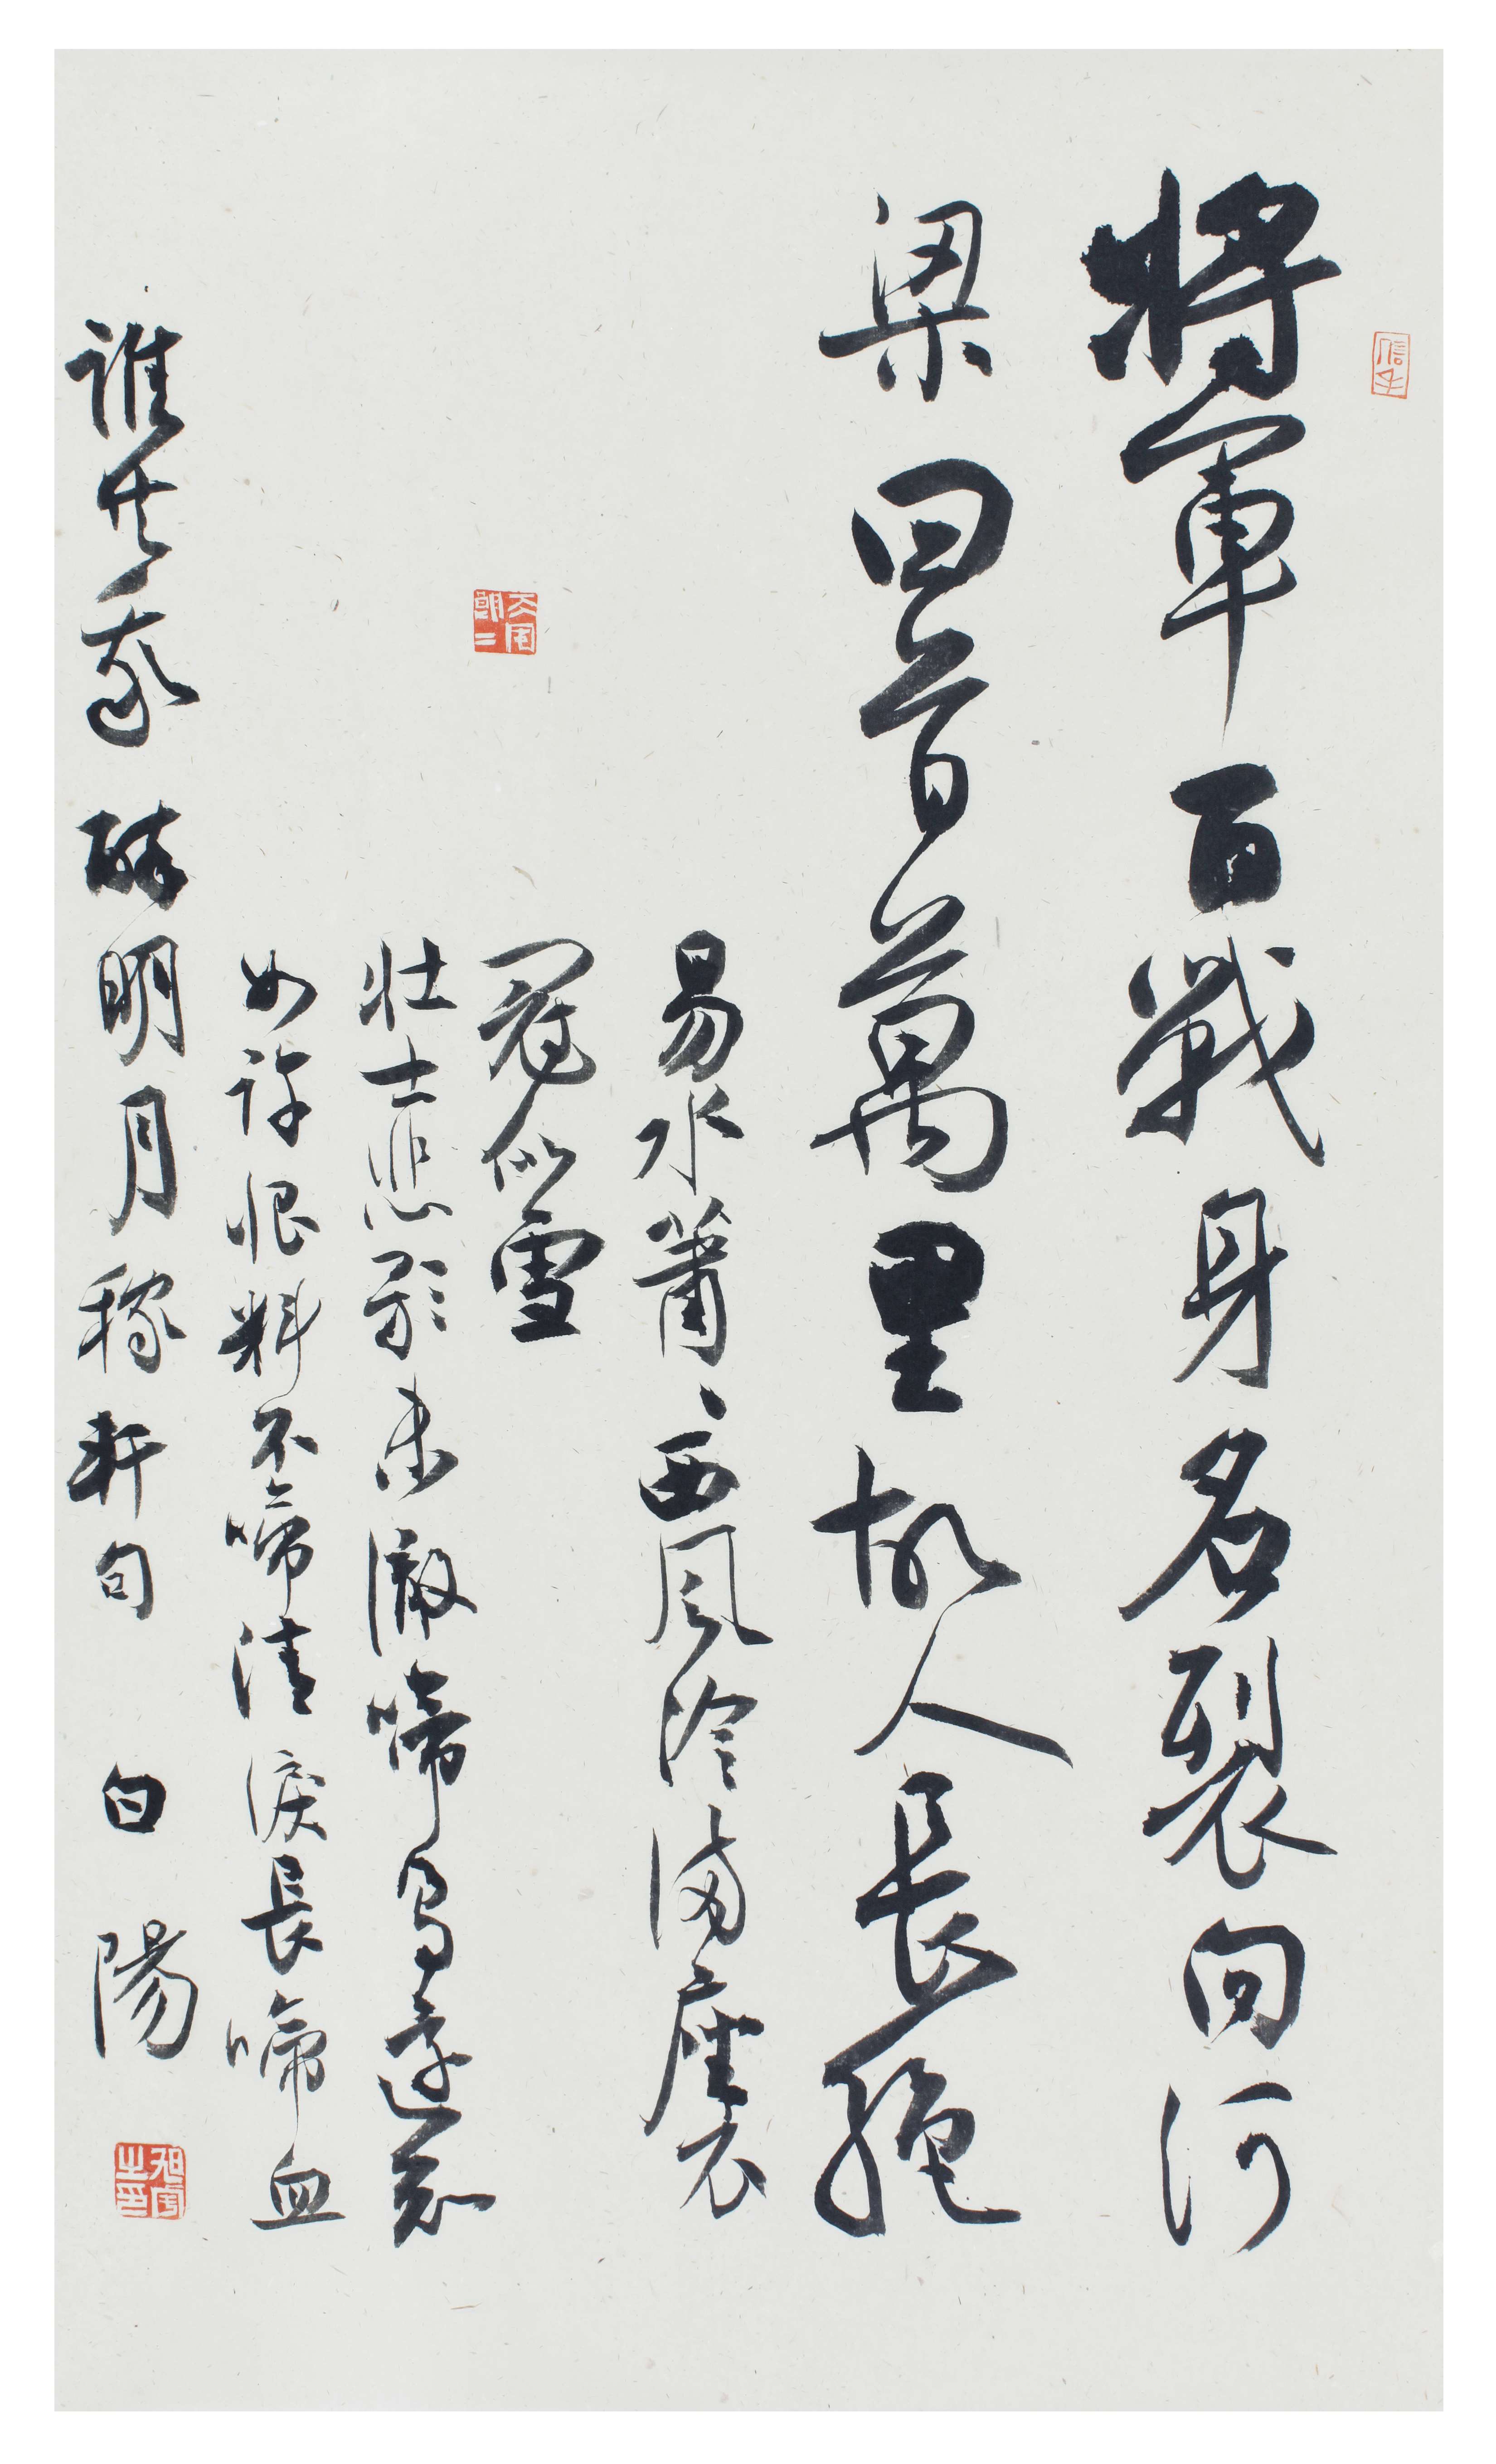 將軍百戰身名裂向河
梁回首萬里故人長絕
易水蕭〻西風冷滿座衣
冠似雪
壯士悲歌未徹啼鳥還知
如許恨料不啼清淚長啼血
誰共我醉明月稼軒句 白陽